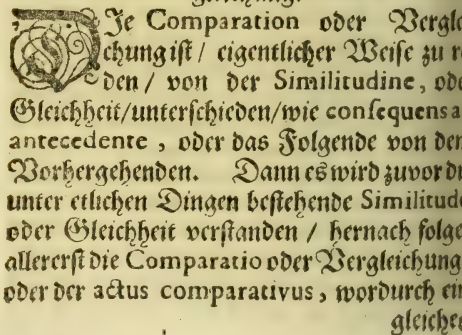 gleichung.
DJe Comparation oder Vergle
chung iſt / eigentlicher Weiſe zu r
den / von der Similitudine, ode
Gleichheit / unterſchieden / wie conſequens a
antecedente, oder das Folgende von den
Vorhergehenden. Dann es wird zuvor d
unter etlichen Dingen beſtehende Similitud
oder Gleichheit verſtanden / hernach folge
allererſt die Comparatio oder Vergleichung
oder der actus comparativus, wordurch ein
gleiche